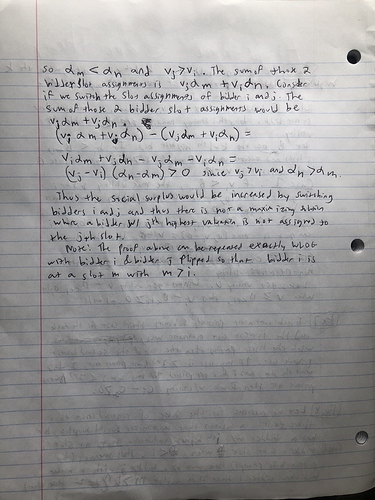 so αm < αn and vj > vi. The sum of those 2
bidder slot assignments is vjαm + viαn. Consider
if we switch the slot assignments of bidder i and j. The
sum of those 2 bidder slot assignments would be
viαm + vjαn.
(viαm + vjαn) - (vjαm + viαn) =
viαm + vjαn - vjαm - viαn =
(vj - vi)(αn - αm) > 0 since vj > vi and αn > αm.
Thus the social surplus would be increased by switching
bidders i and j and thus there is not a maximizing
where a bidder w/ jth highest valuation is not assigned to
the jth slot.
Note: The proof above can be repeated exactly WLOG
with bidder i & bidder j flipped so that bidder i is
at a slot m with m > i.